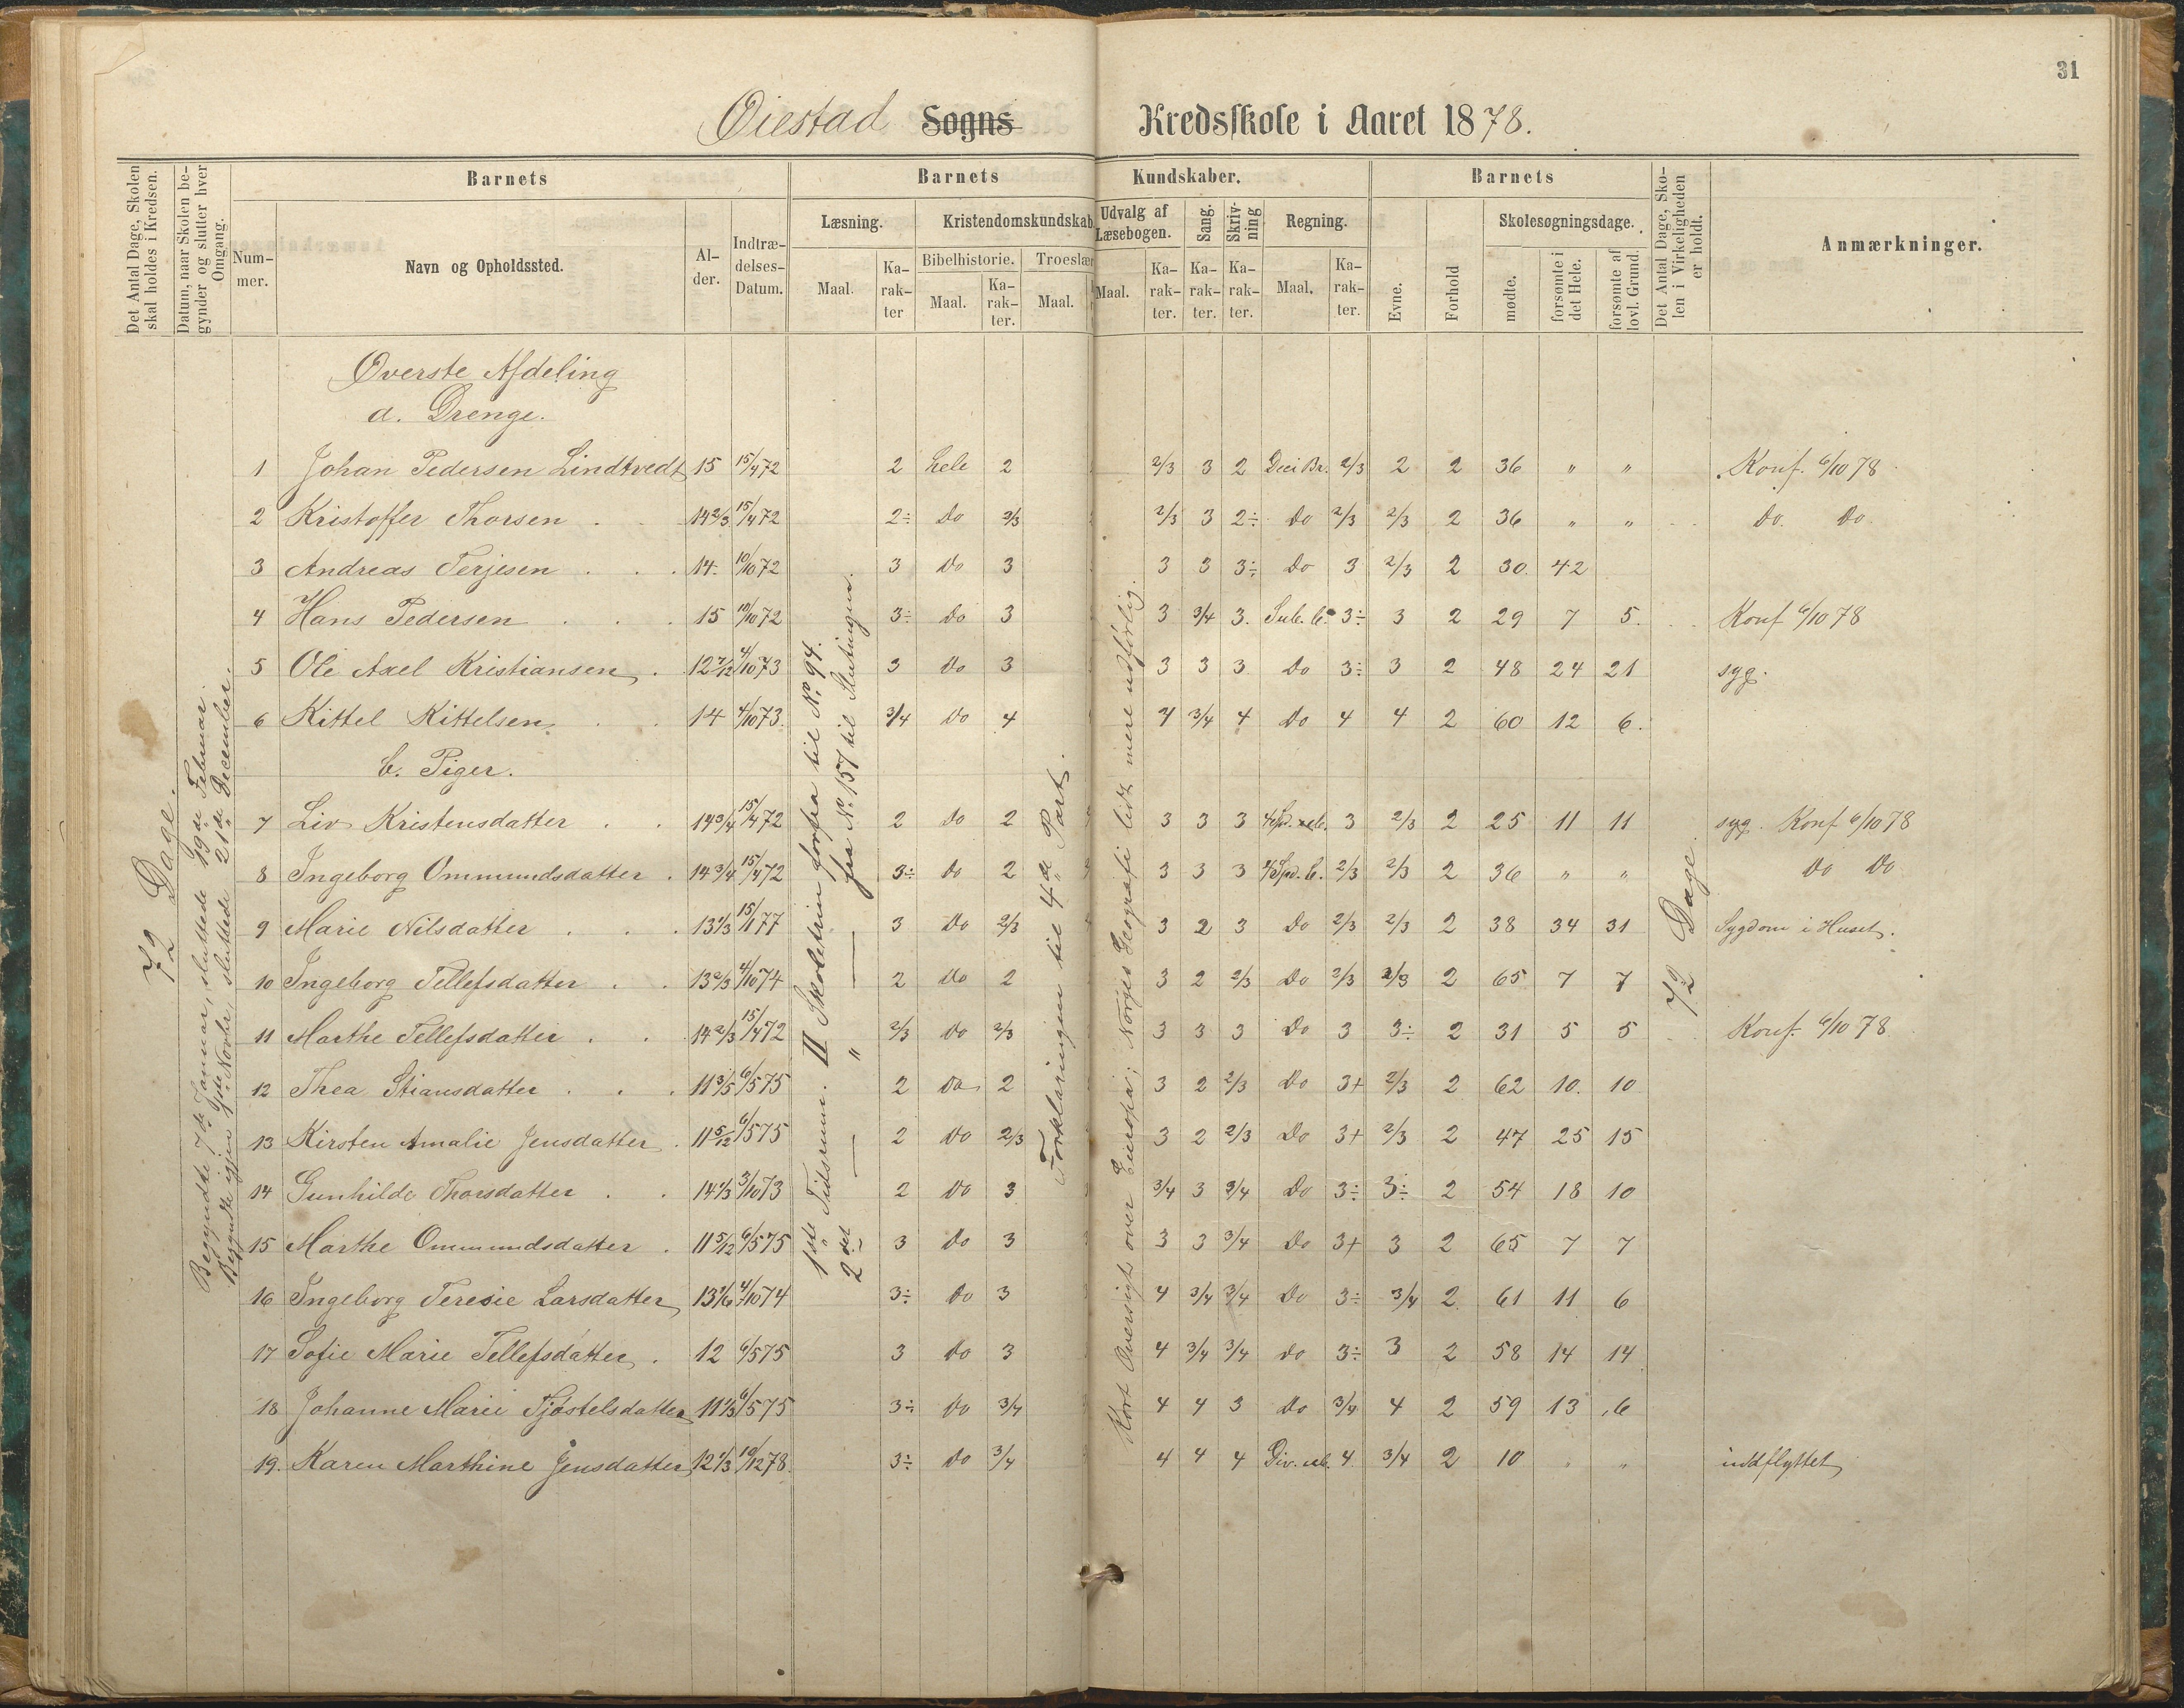 31
Øiestad Sogns Kredsskole i Aaret 1878.
Det Antal Dage, Skolen skal holdes i Kredsen.
Datum, naar Skolen begynder og slutter hver Omgang.
Barnets
Barnets Kundskaber.
Barnets
Det Antal Dage, Skolen i Virkeligheden er holdt.
Anmærkninger.
Nummer.
Navn og Opholdssted.
Alder.
Indtrædelses-Datum.
Læsning.
Kristendomskundskab.
Udvalg af Læsebogen.
Sang.
Skrivning
Regning.
Evne.
Forhold
Skolesøgningsdage.
Bibelhistorie.
Troeslær
Maal. Karakter Maal. Karakter. Maal. Maal. Karakter. Karakter. Karakter. Maal. Karakter.
mødte.
forsømte i det Hele.
forsømte af lovl. Grund.
Øverste Afdeling
a. Drenge.
1 Johan Pedersen Lindtvedt 15 15/4 72 2 hele 2 2/3 3 2 Deci Br. 2/3 2 2 36 " " Konf. 6/10 78
2 Kristoffer Thorsen 14 2/3 15/4 72 2÷ Do 2/3 2/3 3 2÷ Do 2/3 2/3 2 36 " " Do. Do.
3 Andreas Terjesen 14. 10/10 72 3 Do 3 3 3 3÷ Do 3 2/3 2 30. 42
4 Hans Pedersen 15 10/10 72 3÷ Do 3 3 3/4 3. Sub. b. 3÷ 3 2 29 7 5. Konf 6/10 78
5 Ole Axel Kristiansen 12 7/12 4/10 73 3 Do 3 3 3 3 Do 3÷ 3 2 48 24 21 syg.
6 Kittel Kittelsen 14 4/10 73. 3/4 Do 4 4 3/4 4 Do 4 4 2 60 12 6.
b. Piger.
7 Liv Kristensdatter 14 3/4 15/4 72 2 Do 2 3 3 3 3 2/3 2 25 11 11 syg. Konf 6/10 78
8 Ingeborg Ommundsdatter 14 3/4 15/4 72 3÷ Do 2 3 3 3 4 Spd. b. 2/3 2/3 2 36 " " Do Do
9 Marie Nilsdatter 13 1/3 15/1 77 3 Do 2/3 3 2 3 Do 2/3 2/3 2 38 34 31 Sygdom i Huset.
10 Ingeborg Tellefsdatter 13 2/3 4/10 74 2 Do 2 3 2 2/3 Do 2/3 2/3 2 65 7 7
11 Marthe Tellefsdatter 14 2/3 15/4 72 2/3 Do 2/3 3 3 3 Do 3 3÷ 2 31 5 5 Konf. 6/10 78
12 Thea Stiansdatter 11 3/5 6/5 75 2 Do 2 3 2 2/3 Do 3+ 2/3 2 62 10. 10
13 Kirsten Amalie Jensdatter 11 5/12 6/5 75 2 Do 2/3 3 2 2/3 Do 3+ 2/3 2 47 25 15
14 Gunhilde Thorsdatter 14 1/3 3/10 73 2 Do 3 3/4 3 3/4 Do 3÷ 3÷ 2 54 18 10
15 Marthe Ommundsdatter 11 5/12 6/5 75 3 Do 3 3 3 3/4 Do 3+ 3 2 65 7 7
16 Ingeborg Teresie Larsdatter 13 1/6 4/10 74 3÷ Do 3 4 3/4 3/4 Do 3÷ 3/4 2. 61 11 6
17 Sofie Marie Tellefsdatter 12 6/5 75 3 Do 3 4 3/4 3/4 Do 3÷ 3 2 58 14 14
18 Johanne Marie Tjøstelsdatter 11 1/3 6/5 75 3÷ Do 3/4 4 4 3 Do 3/4 4 2 59 13 6
19. Karen Marthine Jensdatter 12 1/3 10/12 78. 3÷ Do 3/4 4 4 4 4 3/4 2 10 " " indflyttet
72 Dage.
Begyndte 7de Januar, sluttede 19de Februar.
Begyndte igjen Novbr, sluttede 21de December.
1ste Tidsrum. II Skoletrin forfra til No. 94.
2det — " — fra No. 157 til Slutningen.
Forklaringen til 4de Part.
Kort Oversigt over Europa; Norges Geografi lidt mere udførlig.
72 Dage